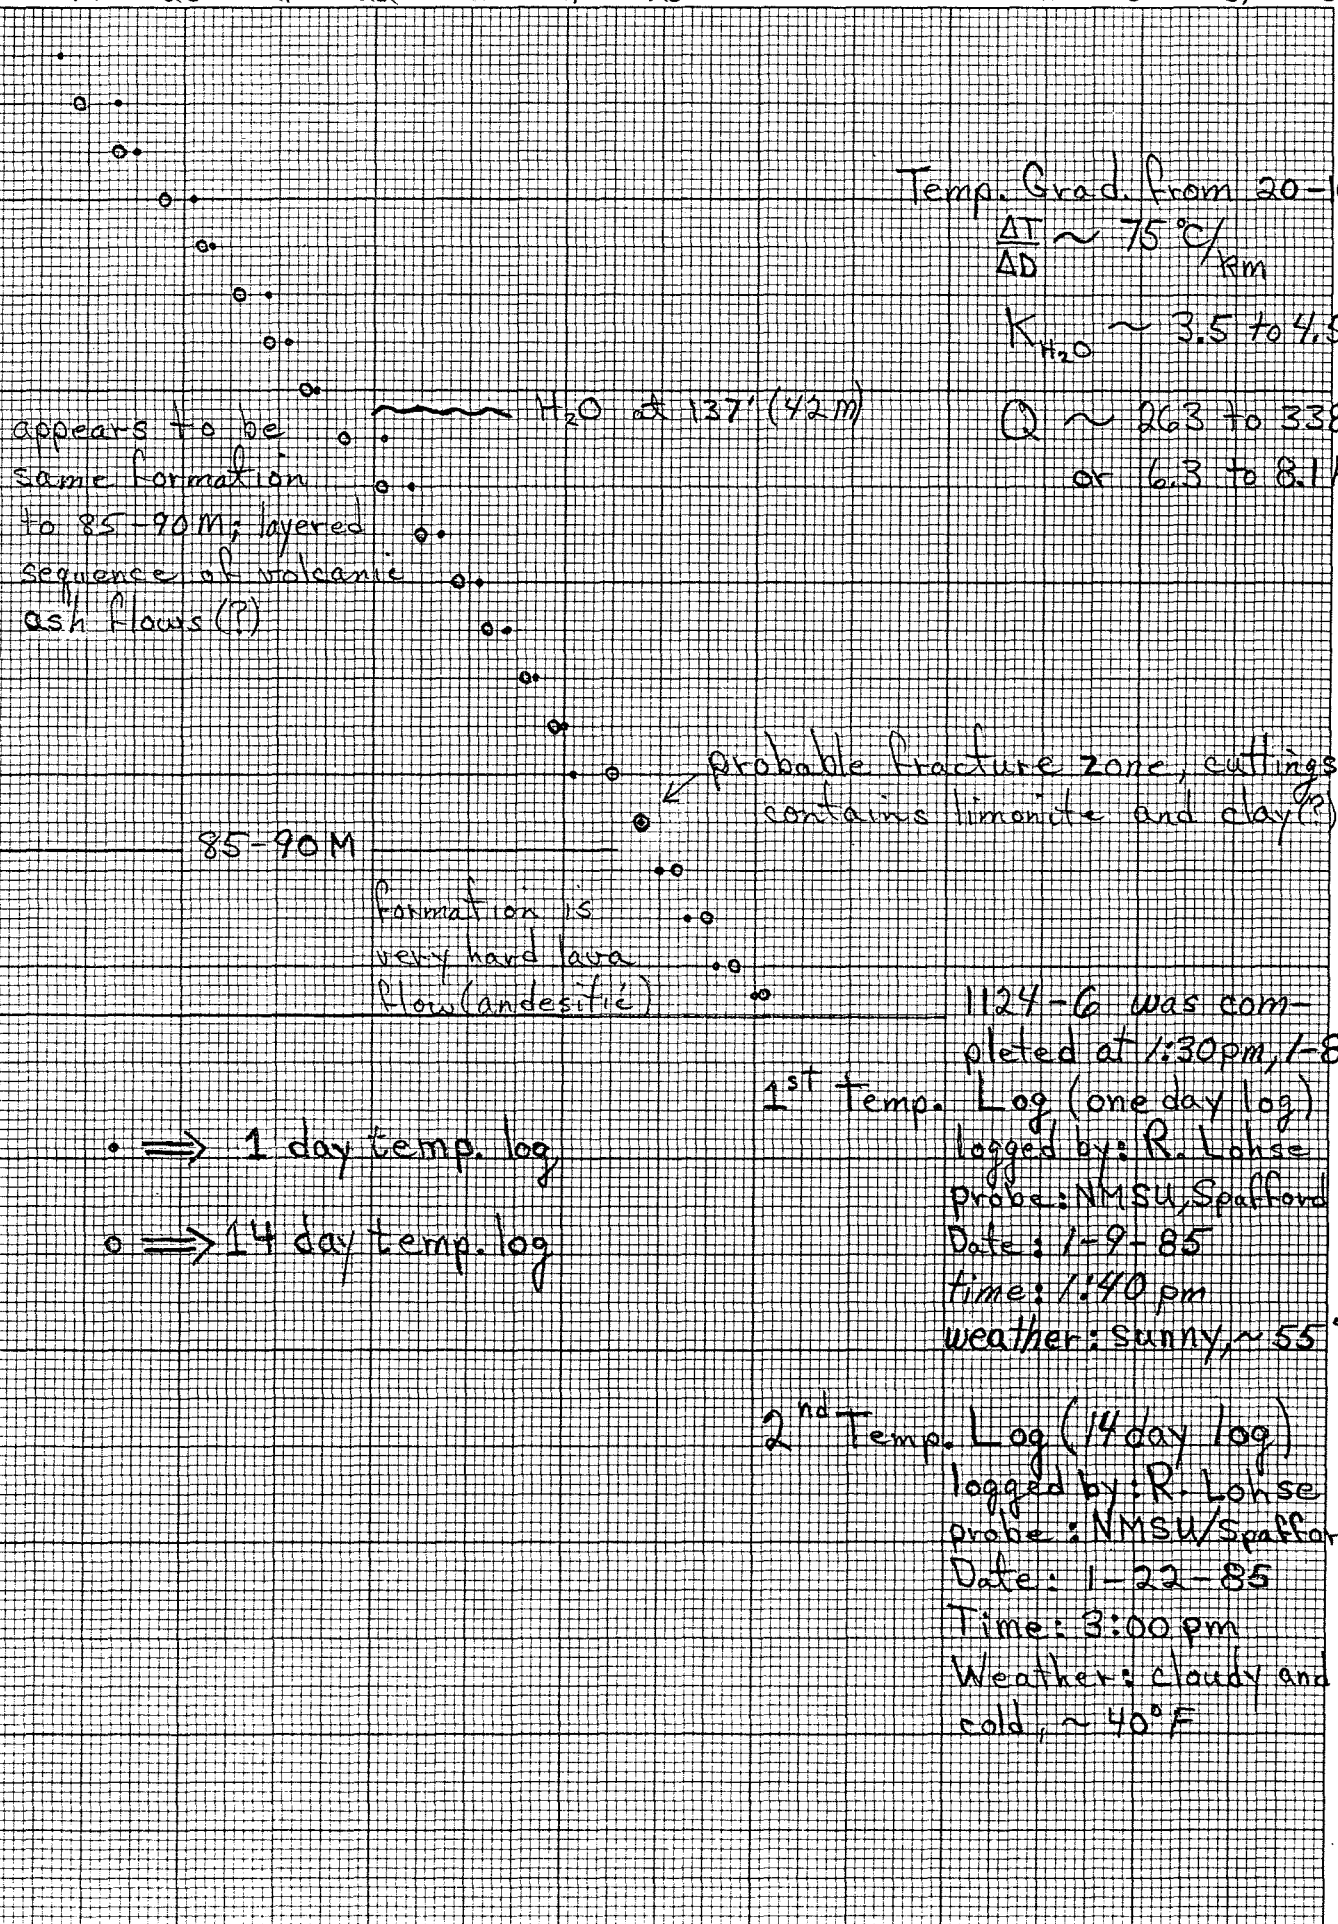 Temp. Grad. from 20-1
ΔT/ΔD ~ 75°C/km
K H₂O ~ 3.5 to 4.5
H₂O at 137' (42M)
Q ~ 263 to 338
or 6.3 to 8.1
appears to be
same formation
to 85-90M; layered
sequence of volcanic
ash flows (?)
probable fracture zone, cuttings
contains limonite and clay(?)
85-90M
formation is
very hard lava
flow (andesitic)
1124-6 was com-
pleted at 1:30pm, 1-8
1st Temp. Log (one day log)
logged by: R. Lohse
probe: NMSU, Spafford
Date: 1-9-85
time: 1:40 pm
weather: sunny, ~ 55°
• ⟹ 1 day temp. log
o ⟹ 14 day temp. log
2nd Temp. Log (14 day log)
logged by: R. Lohse
probe: NMSU/Spaffor
Date: 1-22-85
Time: 3:00 pm
Weather: cloudy and
cold, ~ 40°F